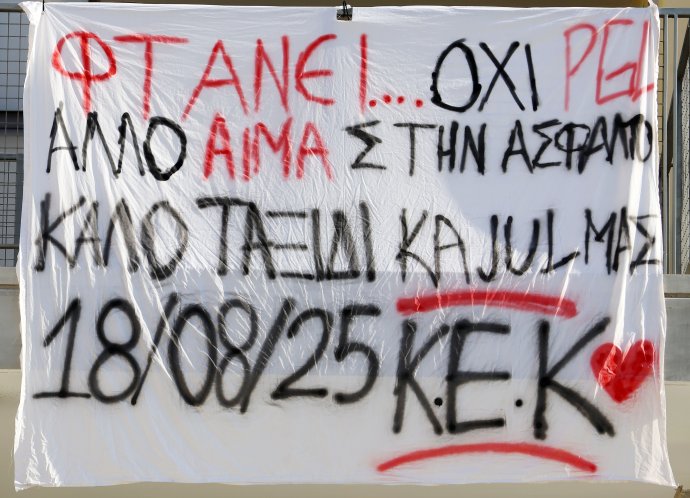 ΦΤΑΝΕΙ....ΟΧΙ PGL
ΑΛΛΟ ΑΙΜΑ ΣΤΗΝ ΑΣΦΑΛΤΟ
ΚΑΛΟ ΤΑΞΙΔΙ KAJUL ΜΑΣ
18/08/25 Κ.Ε.Κ